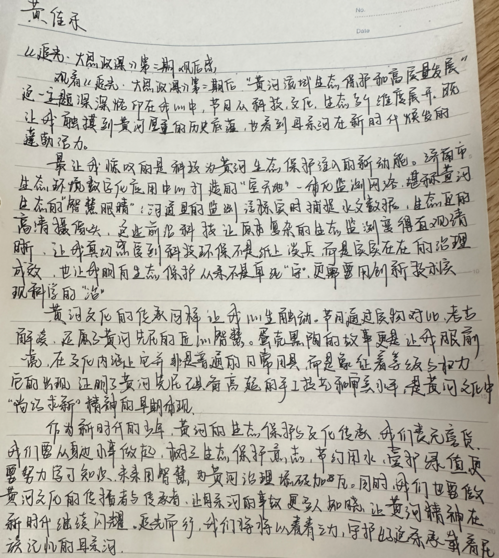 黄佳禾
No.
Date
《追光·大思政课》第二期观后感
观看《追光·大思政课》第二期后,"黄河流域生态保护和高质量发展"
这一主题深深烙印在我心中,节目从科技、文化、生态多个维度展开,既
让我触摸到黄河厚重的历史底蕴,也看到母亲河在新时代焕发的
蓬勃活力。
最让我惊叹的是科技为黄河生态保护注入的新动能。济南市
生态环境数字化应用中心打造的"空天地"一体化监测网络,堪称黄河
生态的"智慧眼睛":河道里的监测浮标实时捕捉水文数据,生态区的
高清摄像头,这些前沿科技让原本复杂的生态监测变得直观清
晰,让我真切感受到科技环保不是纸上谈兵,而是实实在在的治理
成效,也让我明白生态保护从来不是单纯"守",更需要用创新技术实
现科学的"治"。
黄河文化的传承同样让我心生触动。节目通过实物对比、考古
解读,还原了黄河先民的匠心智慧。蛋壳黑陶的故事更是让我眼前一
亮,在文化内涵上它并非是普通的日常用具,而是象征着等级与权力
它的出现,证明了黄河先民已具备高超的手工技艺和审美水平,是黄河文化中
"尚活求新"精神的早期体现。
作为新时代的少年,黄河的生态保护与文化传承,我们责无旁贷,
我们要从身边小事做起,树立生态保护意志,节约用水,爱护绿植,更
要努力学习知识,未来用智慧,为黄河治理添砖加瓦。同时,我们也要做
黄河文化的传播者与传承者,让母亲河的故事更多人知晓,让黄河精神在
新时代继续闪耀。追光而行,我们终将以青春之力,守护好这条承载着民
族记忆的母亲河。